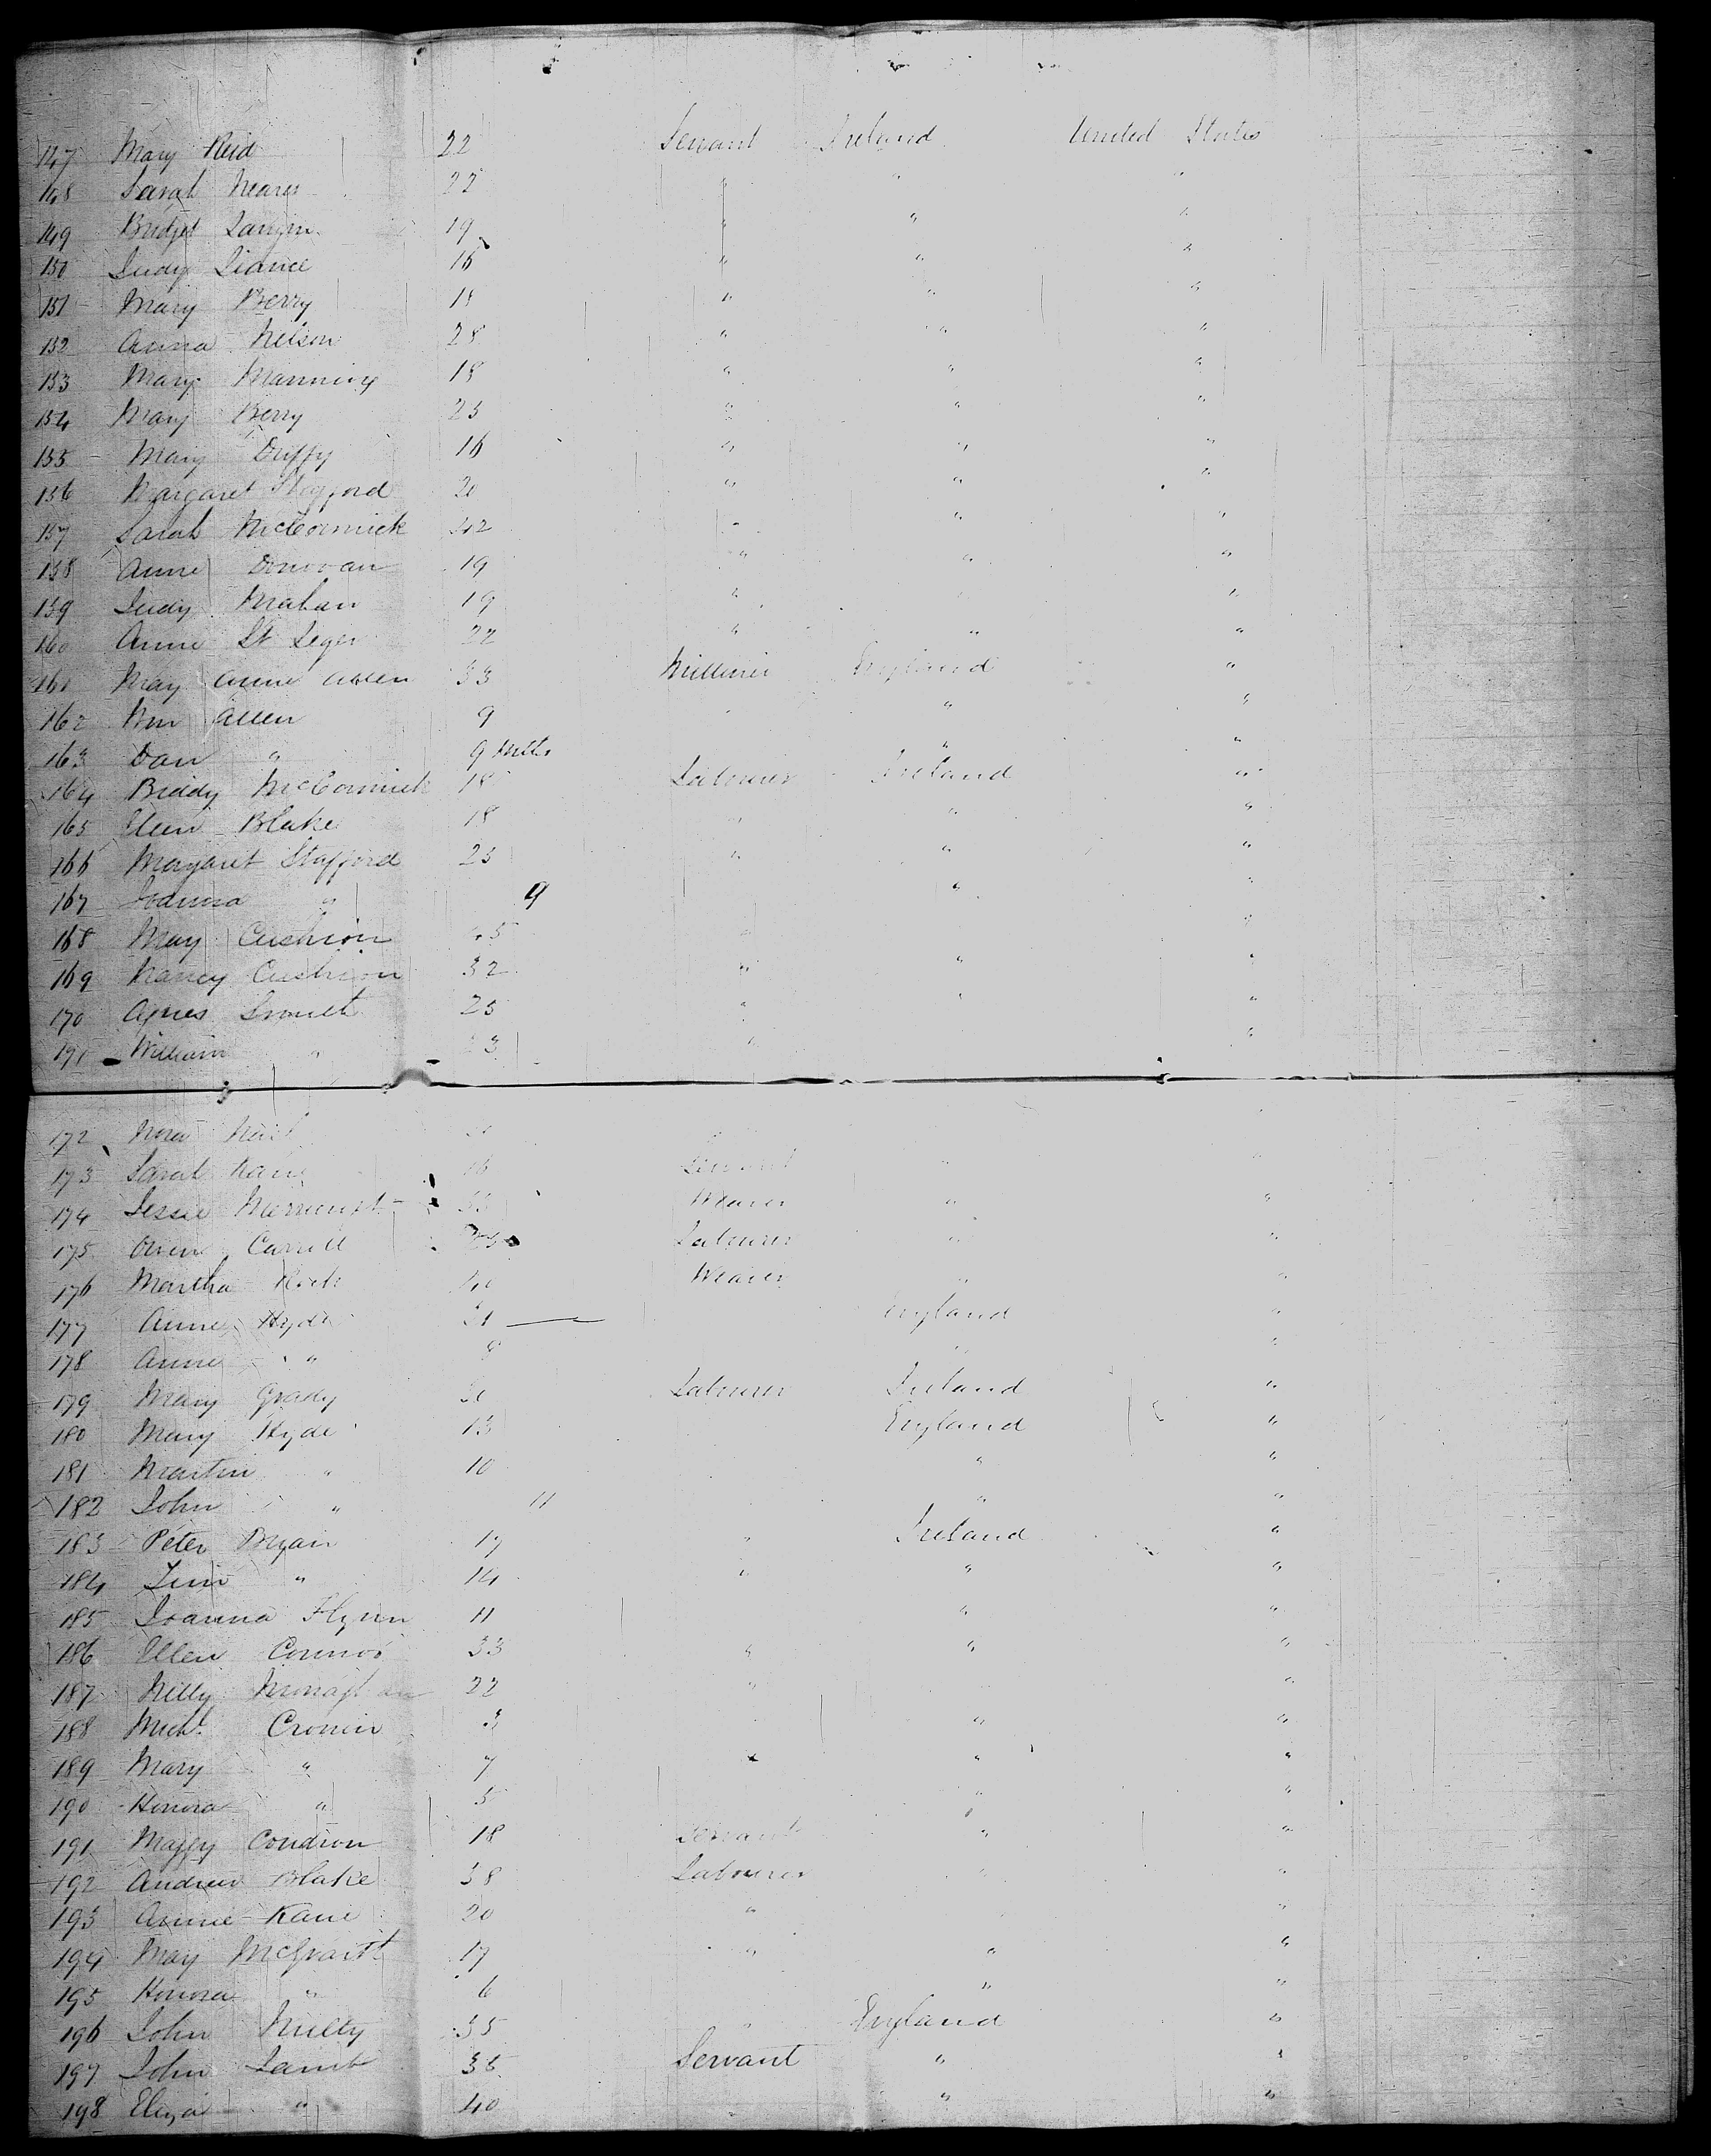 147 Mary Reid 22 Servant Ireland United States
148 Sarah 22 " " "
149 Bridget Langin 19 " " "
150 Judy 16 " " "
151 Mary Berry 18 " " "
152 Anna Nelson 28 " " "
153 Mary Manning 18 " " "
154 Mary Berry 25 " " "
155 Mary Duffy 16 " " "
156 Margaret Stafford 20 " " "
157 Sarah McCormick 42 " " "
158 Anne Donovan 19 " " "
159 Judy Mahan 19 " "
160 Anne St Leger 22 " " "
161 May Anne Allen 33 Milliner England "
162 Wm Allen 9 " "
163 Dan " 9 Mths " "
164 Biddy McCormick 18 Labourer Ireland "
165 Ellen Blake 18 " " "
166 Margaret Stafford 25 " " "
167 Joanna " 9 " "
168 May Cushion 45 " "
169 Nancy Cushion 32 " " "
170 Agnes 25 " " "
171 William " " "
172 Nora
173 Sarah Kane 16 Servant " "
174 Jessie 35 Weaver " "
175 Owen Carroll 25 Labourer " "
176 Martha 40 Weaver " "
177 Anne Hyde 31 England "
178 Anne " " "
179 Mary Grady 20 Labourer Ireland "
180 Mary Hyde 13 England "
181 Martin " 10 " "
182 John " 11 " "
183 Peter Bryan 17 " Ireland "
184 Jim " 14 " " "
185 Joanna Flynn 11 " "
186 Ellen Connor 33 " " "
187 Nelly Monaghan 22 " "
188 Michl Cronin 3 " "
189 Mary " 7 " "
190 Honora " 5 " "
191 Maggy Condron 18 Servant " "
192 Andrew Blake 38 Labourer " "
193 Annie Kane 20 " "
194 May McGrath 17 " " "
195 Honora " 6 " "
196 John Nulty 35 " England "
197 John Lamb 35 Servant " "
198 Eliza " 40 " "